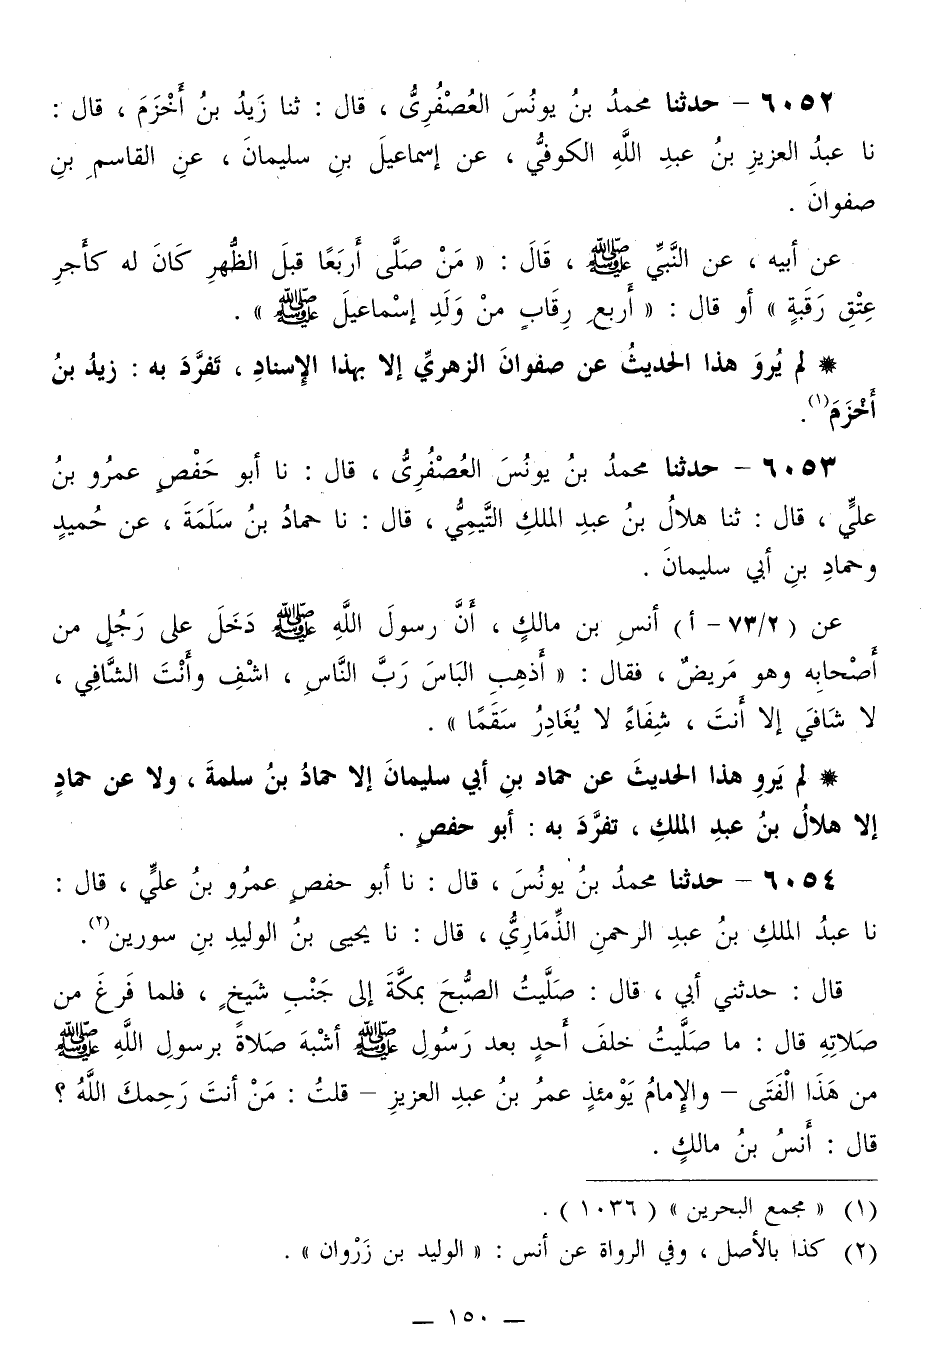 ٦٠٥٢ – حدثنا محمدُ بنُ يونُسَ العُصْفُرِىُّ ، قال : ثنا زَيدُ بنُ أَخْزَمَ ، قال :
نا عبدُ العزيزِ بنُ عبدِ اللَّهِ الكوفيُّ ، عن إسماعيلَ بنِ سليمانَ ، عنِ القاسمِ بنِ
صفوانَ .
عن أبيه ، عن النَّبِّي ﷺ ، قَالَ : « مَنْ صَلَّى أَربَعًا قبلَ الظُّهرِ كَانَ له كأَجرِ
عِتْقِ رَقَبةٍ » أو قال : « أَربعِ رِقابٍ منْ وَلَدِ إسْماعيلَ ﷺ » .
* لم يُروَ هذا الحديثُ عن صفوانَ الزهريِّ إلا بهذا الإسنادِ ، تَفرَّدَ به : زيدُ بنُ
أَخْزَمَ(١).
٦٠٥٣ – حدثنا محمدُ بنُ يونُسَ العُصْفُرِىُّ ، قال : نا أبو حَفْصٍ عمرُو بنُ
عليٍّ ، قال : ثنا هلالُ بنُ عبدِ الملكِ التَّيمِيُّ ، قال : نا حمادُ بنُ سَلَمَةَ ، عن حُميدٍ
وحمادِ بنِ أبي سليمانَ .
عن (٧٣/٢ – أ) أنسِ بن مالكٍ ، أَنَّ رسولَ اللَّهِ ﷺ دَخَلَ على رَجُلٍ من
أَصْحابِه وهو مَريضٌ ، فقال : « أَذهِبِ البَاسَ رَبَّ النَّاسِ ، اشْفِ وأَنْتَ الشَّافِي ،
لا شَافيَ إلا أَنتَ ، شِفَاءً لا يُغَادِرُ سَقَمًا » .
* لم يَروِ هذا الحديثَ عن حماد بنِ أبي سليمانَ إلا حمادُ بنُ سلمةَ ، ولا عن حمادٍ
إلا هلالُ بنُ عبدِ الملكِ ، تفرَّدَ به : أبو حفصٍ .
٦٠٥٤ – حدثنا محمدُ بنُ يونُسَ ، قال : نا أبو حفصٍ عمرُو بنُ عليٍّ ، قال :
نا عبدُ الملكِ بنُ عبدِ الرحمنِ الذِّمَارِيُّ ، قال : نا يحيى بنُ الوليدِ بنِ سورين(٢).
قال : حدثني أبي ، قال : صَلَّيتُ الصُّبحَ بمكَّةَ إلى جَنْبِ شَيخٍ ، فلما فَرغَ من
صَلاتِهِ قال : ما صَلَّيتُ خلفَ أَحدٍ بعد رَسُولِ ﷺ أشْبهَ صَلاةً برسولِ اللَّهِ ﷺ
من هَذَا الْفَتَى – والإمامُ يَوْمئذٍ عمرُ بنُ عبدِ العزيزِ – قلتُ : مَنْ أنتَ رَحِمكَ اللَّهُ ؟
قال : أَنسُ بنُ مالكٍ .
(١) « مجمع البحرين » ( ١٠٣٦ ) .
(٢) كذا بالأصل ، وفي الرواة عن أنس : « الوليد بن زَرْوان » .
– ١٥٠ –